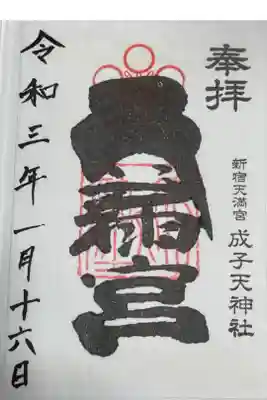 奉拝
新宿天満宮 成子天神社
天満宮
令和三年一月十六日